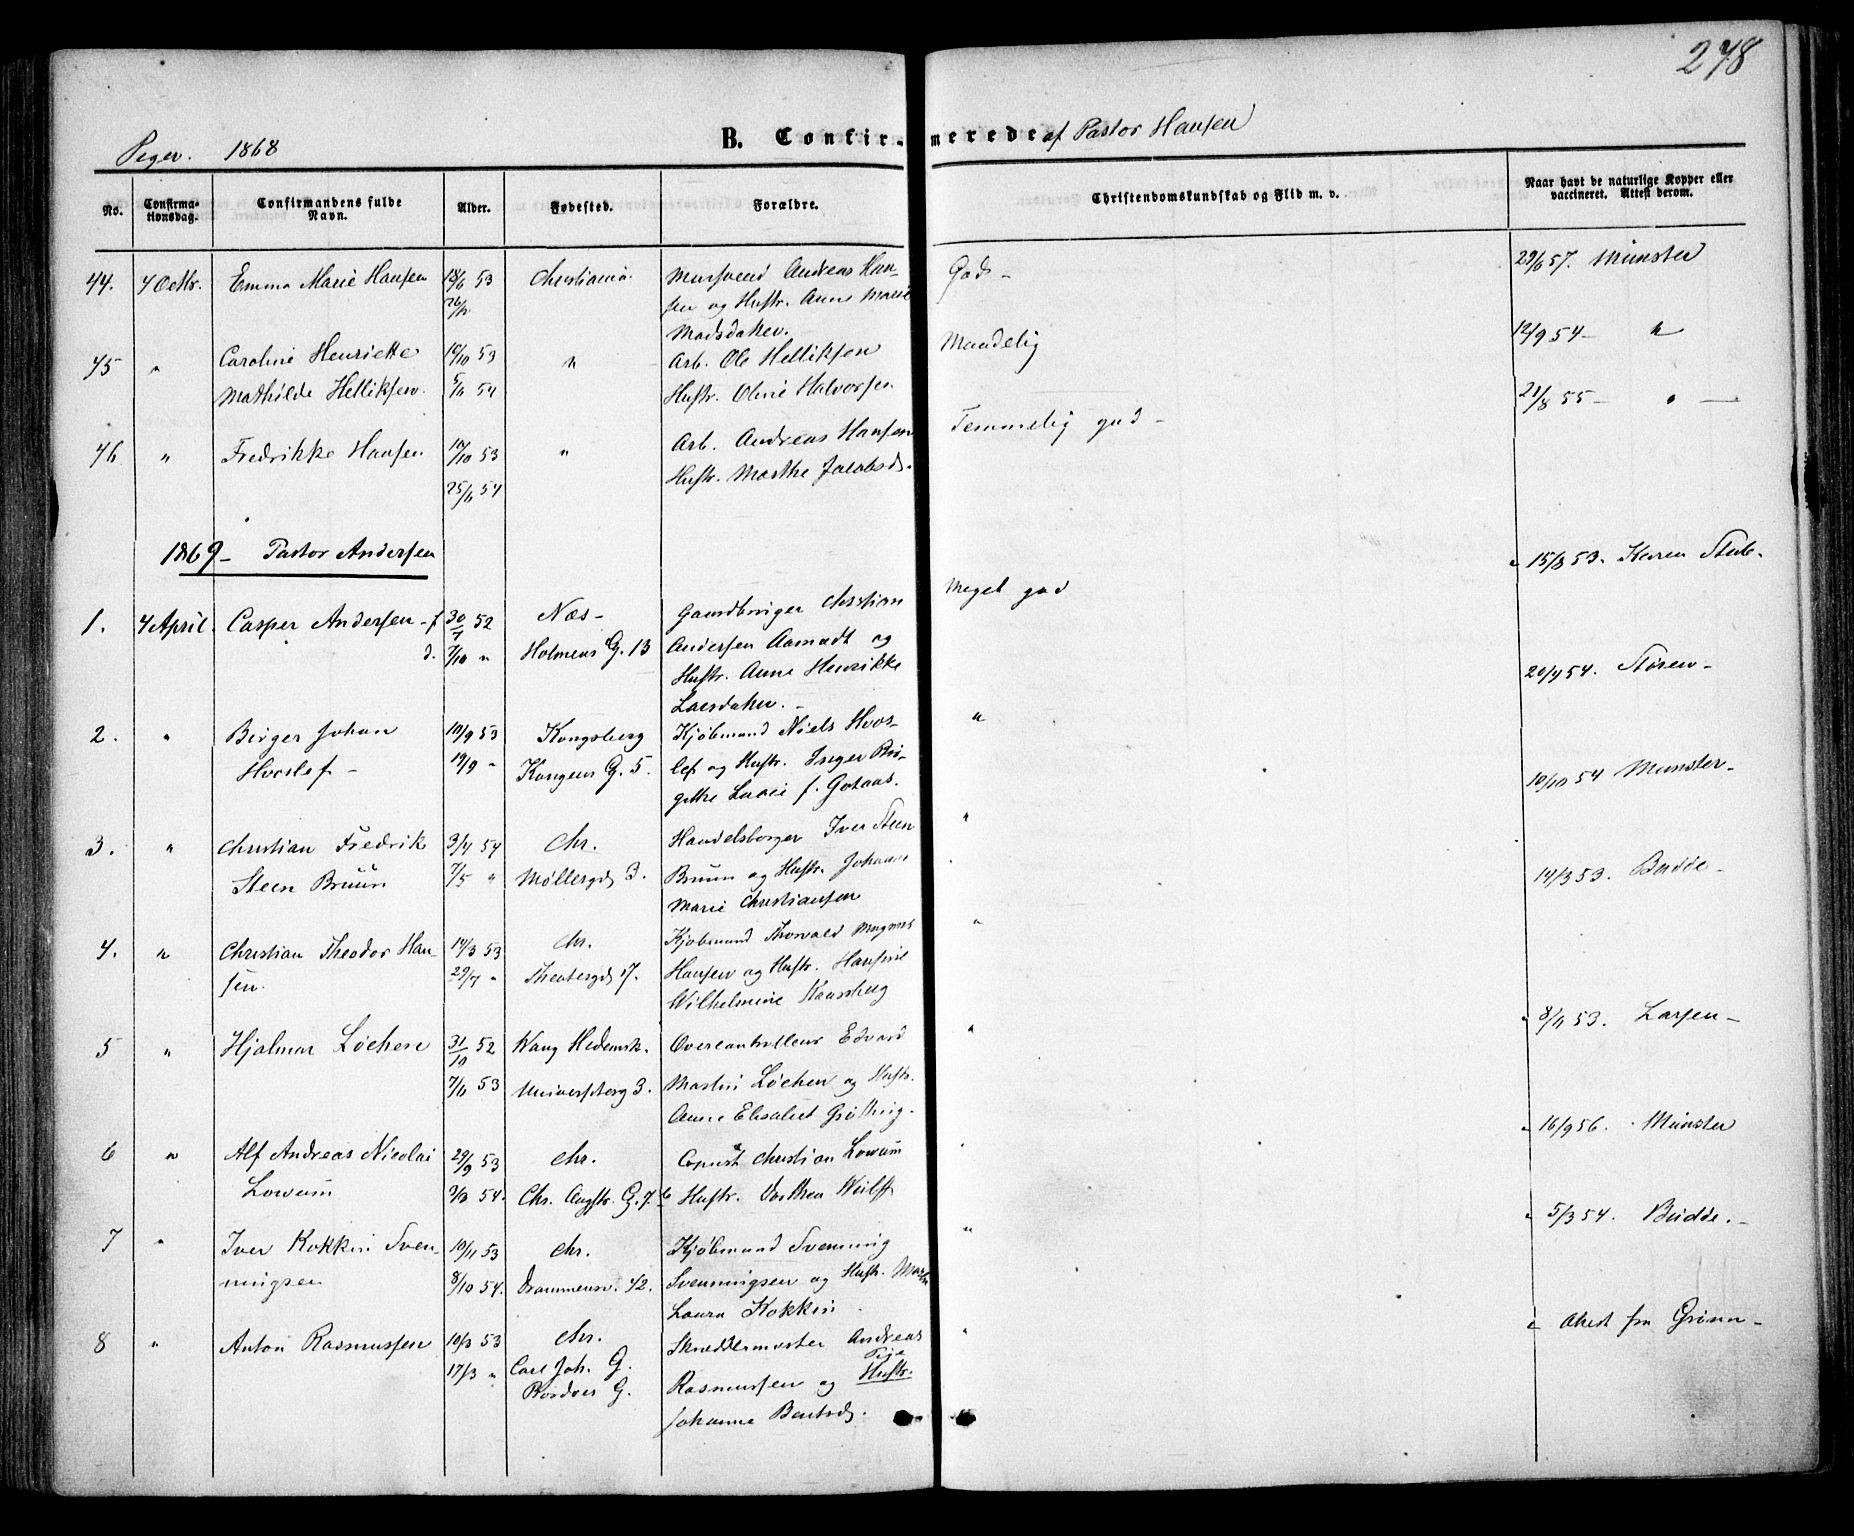 278
Piger. 1868
B. Confirmerede af Pastor Hansen
No.
Confirmationsdag.
Confirmandens fulde Navn.
Alder.
Fødested.
Forældre.
Christendomskundskab og Flid m. v.
Naar havt de naturlige Kopper eller vaccineret. Attest derom.
44. 4 Octbr. Emma Marie Hansen 18/6 53 Christiania Andreas Han- Godt 29/6 57. Münster
sen og Hustr. Anne Marie
Madsdatter.
45 " Caroline Henriette 10/10 53 " Arb. Ole Helliksen Maadelig 12/9 54 "
Mathilde Helliksen. 54 Hustr. Oline Halvorsen
46 " Fredrikke Hansen 17/10 53 " Arb. Andreas Hansen Temmelig god 21/8 55 "
25/6 54 Hustr. Marthe Jacobsd.
1869 - Pastor Andersen
1. 4 April. Casper Andersen - f 30/7 52 Næs - Christian Meget god 15/8 53. Karen
d. 7/10 " Holmens G. 13 Andersen Aamodt og
Hustr. Anne Henrikke
Larsdatter.
2. " Birger Johan 10/9 53 Kongsberg Kjøbmand Niels Hvos- " 20/4 54. Støren
Hvoslef - 19/9 " Kongens G. 5. lef og Hustr. Inger Bir-
gitte f. Gotaas.
3. " Christian Fredrik 3/4 54 Chr. Handelsborger Iver Steen " 10/10 54 Münster
Steen Bruun 7/5 " Møllergd 3. Bruun og Hustr. Johanne
Marie Christiansen
4. " Christian Theodor Han- 14/3 53 Chr. Kjøbmand Thorvald Magnus " 14/3 53. Budde
sen. 29/7 " Theatergd 17. Hansen og Hustr. Hansine
Wilhelmine
5 " Hjalmar Løchen 31/10 52 Vang Hedemk. Overcontrolleur Edvard " 8/11 53. Larsen
7/11 53 Universitetsg 3. Martin Løchen og Hustr.
Anne Elisabet Grøtting.
6 " Alf Andreas Nicolai 29/9 53 Chr. Copiist Christian Lowum " 16/9 56. Münster
Lowum 54. Chr. Augstr. G. 7 b Hustr. Dorthea Wulff
7 " Iver Kokkin Sven- 10/11 53 Chr. Kjøbmand Svenning " 5/3 54. Budde.
ningsen 8/10 54. Drammensv. 42. Svenningsen og Hustr.
Laura Kokkin
8 " Anton Rasmussen 10/3 53 Chr. Skreddermester Andreas " Attest fra
17/3 " Carl Joh. G. Rasmussen og Hustr. Pige
G. Johanne Bentsd.